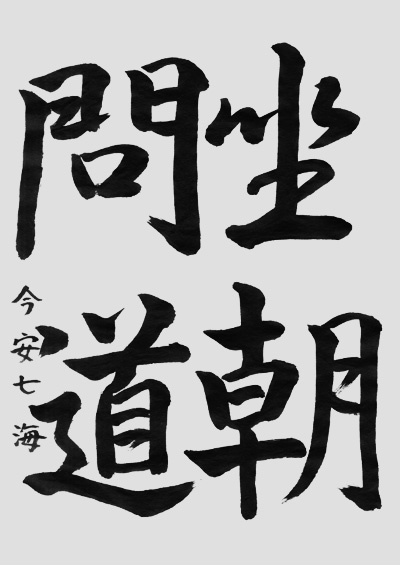 坐朝
問道
今安七海